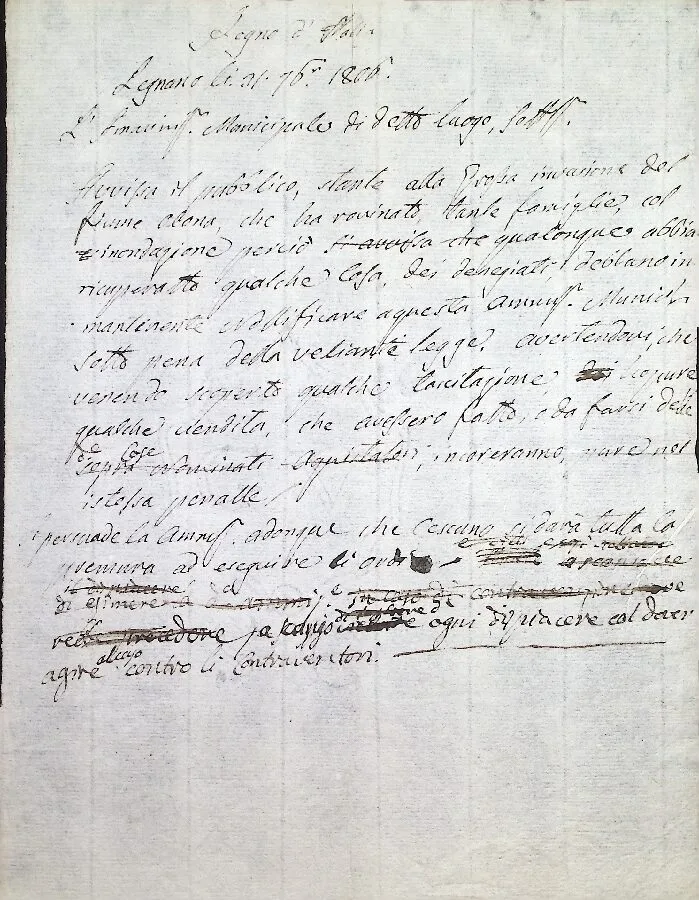 Regno d' Itali.
Legnano li. 21. 7b.r 1806.
L' Amminis. Municipale di detto luogo, Sottos.
Avvisa il pubblico, stante alla Grossa invasione del
fiume olona, che ha rovinato, tante famiglie, col
inondazione perciò si avvisa che qualonque abbia
ricuperatto qualche Cosa, dei denegiati debbano in
mantinente nottificare aquesta Amminis. Municipl.
sotto pena della veliante legge. avertendovi, che
venendo scoperto qualche tacitazione, hopure
qualche vendita, che avessero fatto, o da farsi delle
Cose
sopra Nominati Aquistatori, incoreranno, pure nel
istessa penalle.
persuade la Amminis. adonque che Cescuno, si darà tutta la
premura ad eseguire li ordi
il dispiacere
di esimere a Ammi. in caso di contravenzione
procedere ogni dispiacere col dover
agire alcaso contro li Contraventori.